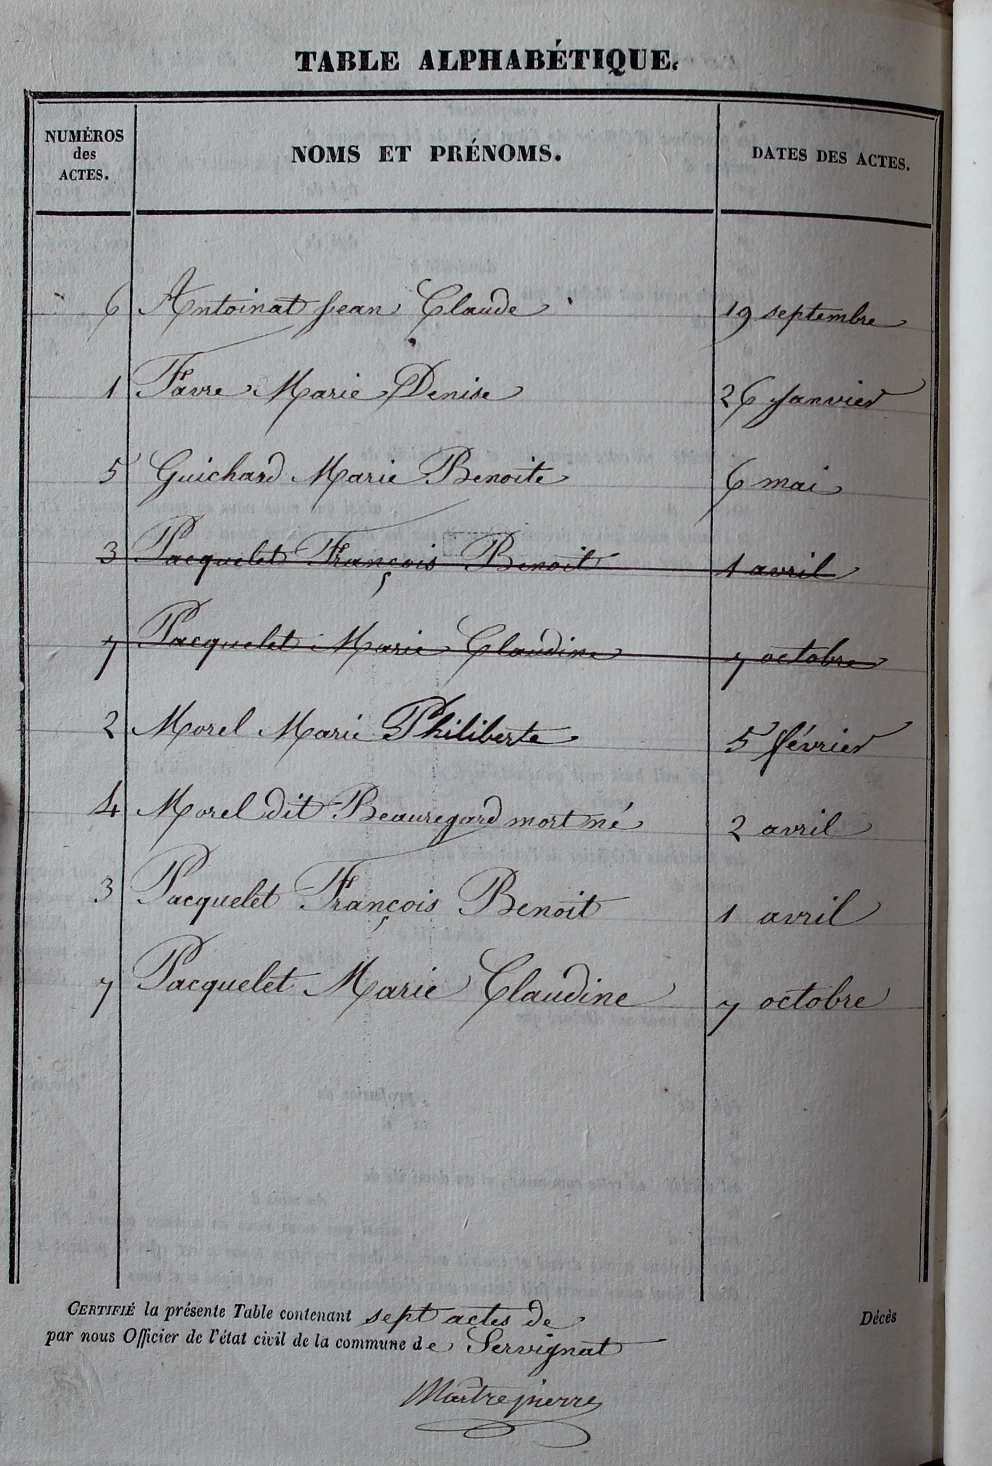 TABLE ALPHABÉTIQUE.
NUMÉROS des ACTES. NOMS ET PRÉNOMS. DATES DES ACTES.
6 Antoinat Jean Claude 19 septembre
1 Favre Marie Denise 26 Janvier
5 Guichard Marie Benoite 6 mai
3 Pacquelet François Benoit 1 avril
7 Pacquelet Marie Claudine 7 octobre
2 Morel Marie Philiberte 5 février
4 Morel dit Beauregard mort né 2 avril
3 Pacquelet François Benoit 1 avril
7 Pacquelet Marie Claudine 7 octobre
CERTIFIÉ la présente Table contenant sept actes de Décès
par nous Officier de l'état civil de la commune de Servignat
Maîtrepierre